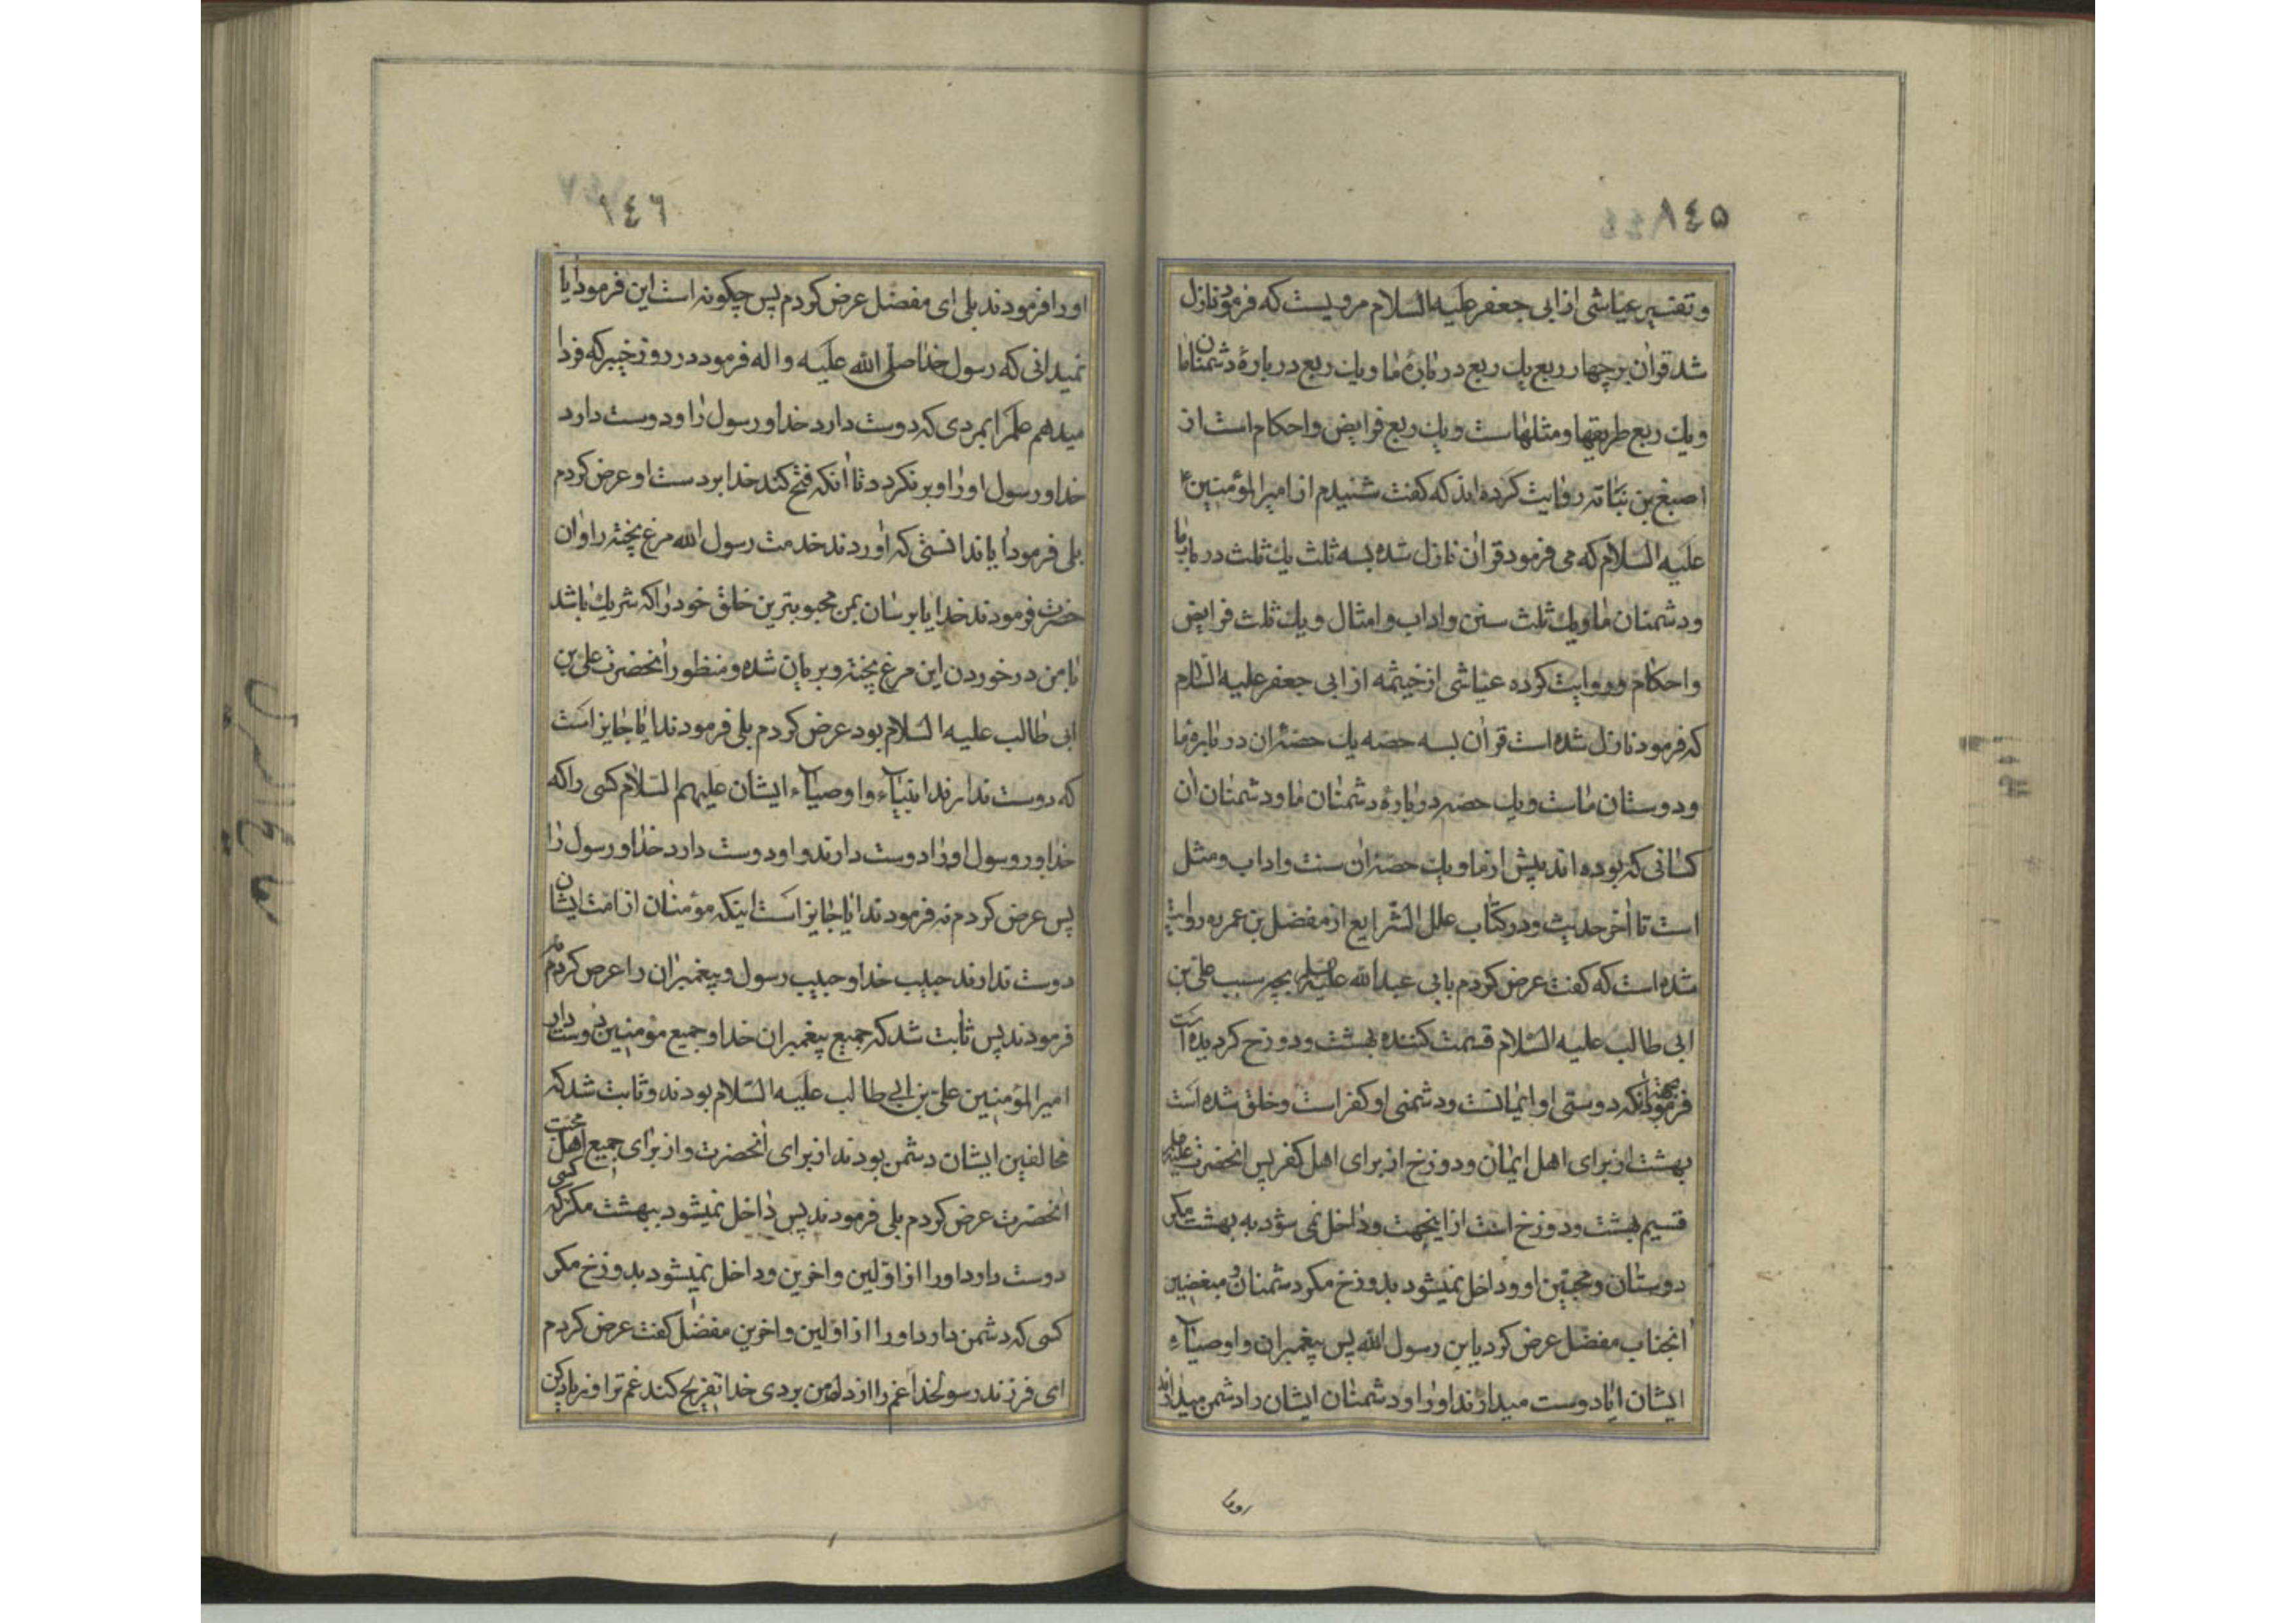 ۸٤۵
و تفسیر عیاشی از ابی جعفر علیه السلام مرویست که فرمود نازل
شد قرآن بر چهار ربع یك ربع در بارۀ ما و یك ربع در بارۀ دشمنان ما
و یك ربع طریقها و مثلهاست و یك ربع فرایض و احکام است از
اصبغ بن نباته روایت کرده اند که کفت شنیدم از امیرالمؤمنین ع
علیه السلام که می فرمود قرآن نازل شده بسه ثلث یك ثلث در باب ما
و دشمنان ما و یك ثلث سنن و اداب و امثال و یك ثلث فرایض
و احکام و روایت کرده عیاشی از خیثمه از ابی جعفر علیه السلام
که فرمود نازل شده است قرآن بسه حصه یك حصۀ آن در بارۀ ما
و دوستان ماست و یك حصه در بارۀ دشمنان ما و دشمنان آن
کسانی که بوده اند پیش از ما و یك حصۀ آن سنت و اداب و مثل
است تا آخر حدیث و در کتاب علل الشرایع از مفضل بن عمر روایت
شده است که کفت عرض کردم بابی عبدالله علیه السلم بچه سبب علی بن
ابی طالب علیه السلام قسمت کننده بهشت و دوزخ کردیده است
فرمود بجهة آنکه دوستی او ایمانست و دشمنی او کفر است و خلق شده است
بهشت از برای اهل ایمان و دوزخ از برای اهل کفر پس آنحضرت علیه السلم
قسیم بهشت و دوزخ است از اینجهت و داخل نمی شود به بهشت مکر
دوستان و محبین او و داخل نمیشود بدوزخ مکر دشمنان و مبغضین
آنجناب مفضل عرض کرد یابن رسول الله پس پیغمبران و اوصیاء
ایشان آیا دوست میدارند او را و دشمنان ایشان را دشمن میدارند
او را
۸٤٦
او را فرمودند بلی ای مفضل عرض کردم پس چکونه است این فرمود آیا
نمیدانی که رسول خدا صلی الله علیه و اله فرمود در روز خیبر که فردا
میدهم علم را بمردی که دوست دارد خدا و رسول را و دوست دارد
خدا و رسول او را و برنکردد تا آنکه فتح کند خدا بر دست او عرض کردم
بلی فرمود آیا ندانستی که آوردند خدمت رسول الله مرغ پخته را و آن
حضرت فرمودند خدایا برسان بمن محبوبترین خلق خود را که شریك باشد
با من در خوردن این مرغ پخته و بریان شده و منظور آنحضرت علی بن
ابی طالب علیه السلام بود عرض کردم بلی فرمودند آیا جایز است
که دوست ندارند انبیاء و اوصیاء ایشان علیهم السلام کسی را که
خدا و رسول او را دوست دارند و او دوست دارد خدا و رسول را
پس عرض کردم نه فرمودند آیا جایز است اینکه مؤمنان از امت ایشان
دوست ندارند حبیب خدا و حبیب رسول و پیغمبران را عرض کردم نه
فرمودند پس ثابت شد که جمیع پیغمبران خدا و جمیع مؤمنین دوست دار
امیرالمؤمنین علی بن ابی طالب علیه السلام بودند و ثابت شد که
مخالفین ایشان دشمن بودند از برای آنحضرت و از برای جمیع اهل محبت
آنحضرت عرض کردم بلی فرمودند پس داخل نمیشود ببهشت مکر کسی که
دوست دارد او را از اولین و آخرین و داخل نمیشود بدوزخ مکر
کسی که دشمن دارد او را از اولین و آخرین مفضل کفت عرض کردم
ای فرزند رسولخدا غم را از دل من بردی خدا تفریح کند غم ترا و زیاد کن